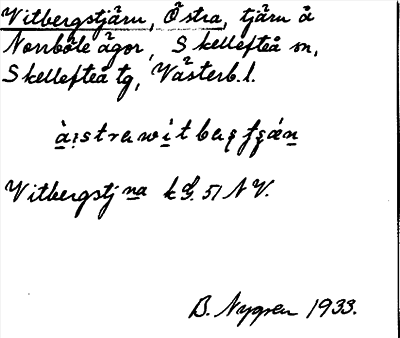 Vitbergstjärn, Östra, tjärn å
Norrböle ägor, Skellefteå sn,
Skellefteå tg, Västerb. l.
Vitbergstjna kbl. 51 NV.
B. Nygren 1933.